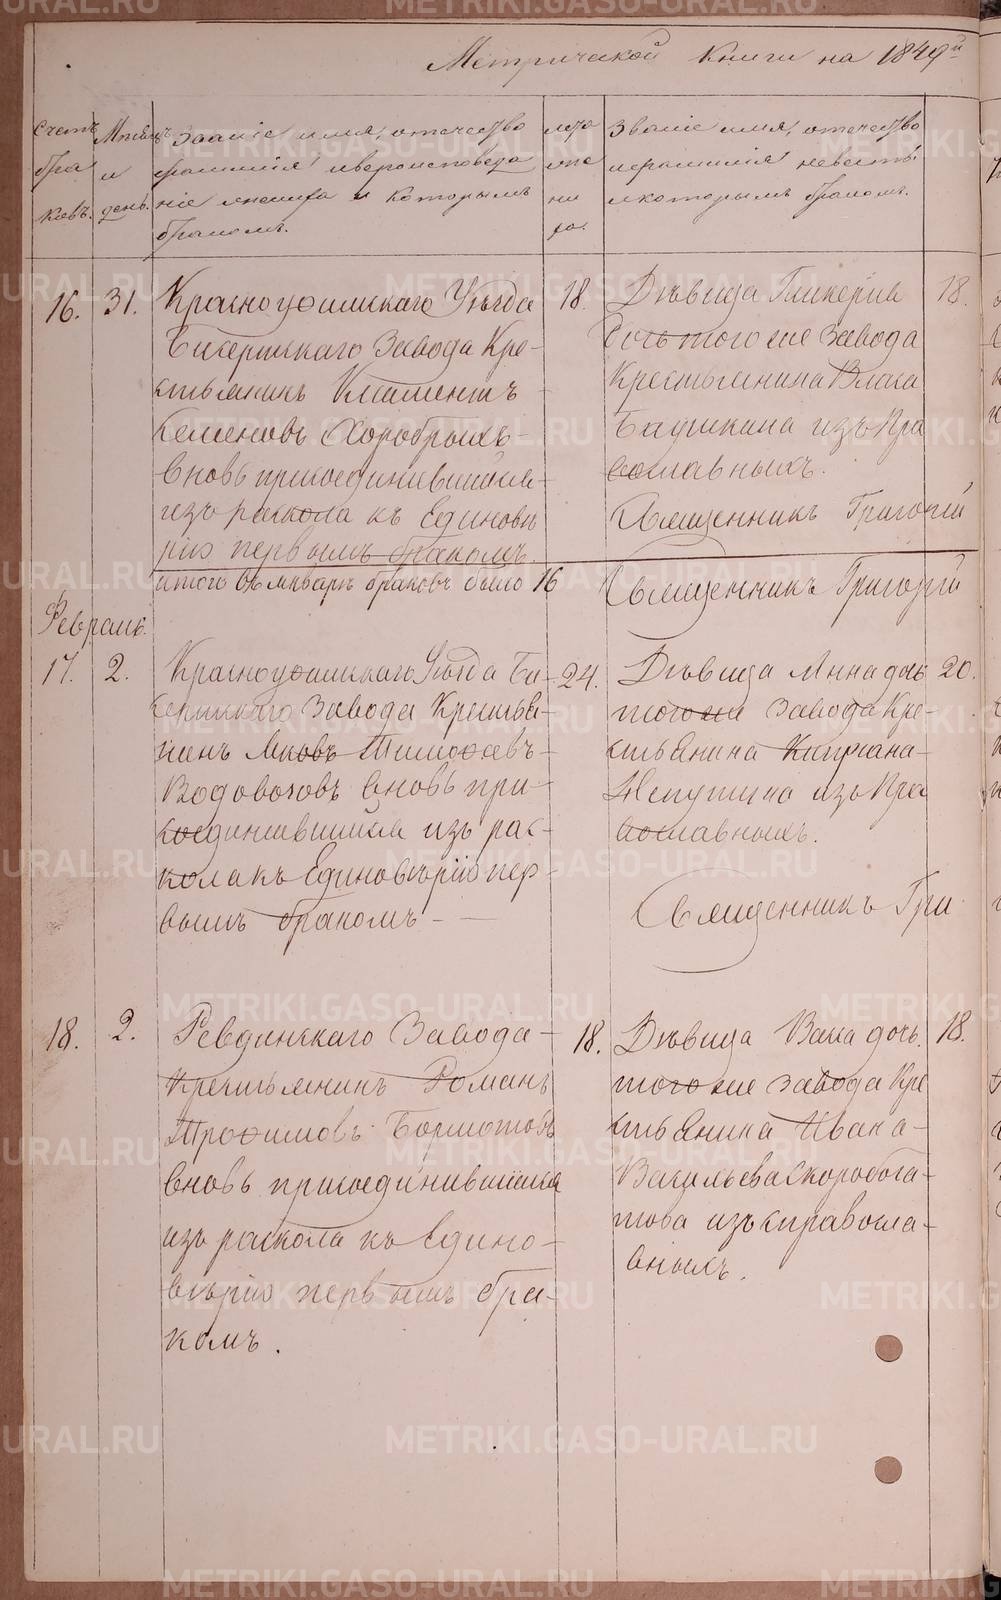 Метрической книги на 1849й
Счетъ браковъ.
Месяцъ и день.
Званіе имя, отечество
фамилія и вероисповеда
ніе жениха и которымъ
бракомъ.
лета жениха.
Званіе имя, отечество
и фамилія невесты
и которымъ бракомъ.
16. 31. Красноуфимскаго Уѣзда
Бисертскаго Завода Кре-
стьянинъ Климентъ
Семеновъ Хоробрыхъ-
вновь присоединившійся-
изъ раскола къ Единовѣ
рію первымъ бракомъ.
18.
Дѣвица Гликерия
дочь того же завода
Крестьянина Власа
Бадикина изъ пра
вославныхъ.
18.
Священникъ Григорій
итого въ январѣ браковъ было 16
Священникъ Григорій
Февраль.
17. 2. Красноуфимскаго Уѣзда Би-
сертскаго Завода Крестья-
нинъ Яковъ Тимофеевъ-
Водовозовъ вновь при-
соединившійся изъ рас-
кола къ Единовѣрію пер
вымъ бракомъ - -
24.
Дѣвица Анна дочь
того же Завода Кре-
стьянина Киприана-
изъ пра
вославныхъ.
20.
Священникъ Гри
18. 2. Ревдинскаго Завода-
Крестьянинъ Романъ
Трофимовъ Бормотовъ
вновь присоединившійся
изъ раскола къ Едино-
вѣрію первымъ бра-
комъ.
18.
Дѣвица Васа дочь
того же завода Кре
стьянина Ивана-
Васильева Скоробога-
това изъ правосла-
вныхъ.
18.
METRIKI.GASO-URAL.RU